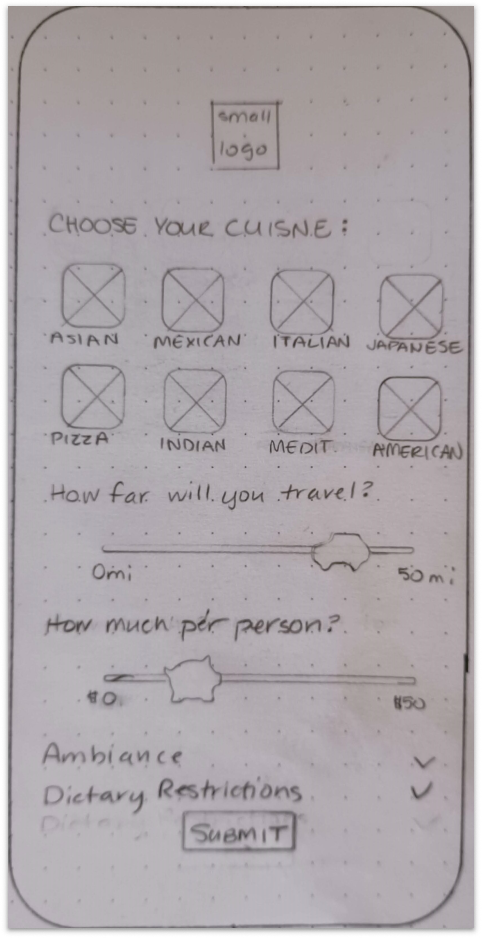 small
logo
CHOOSE YOUR CUISNE:
ASIAN MEXICAN ITALIAN JAPANESE
PIZZA INDIAN MEDIT. AMERICAN
How far will you travel?
0mi 50mi
How much per person?
$0 $50
Ambiance
Dietary Restrictions
SUBMIT